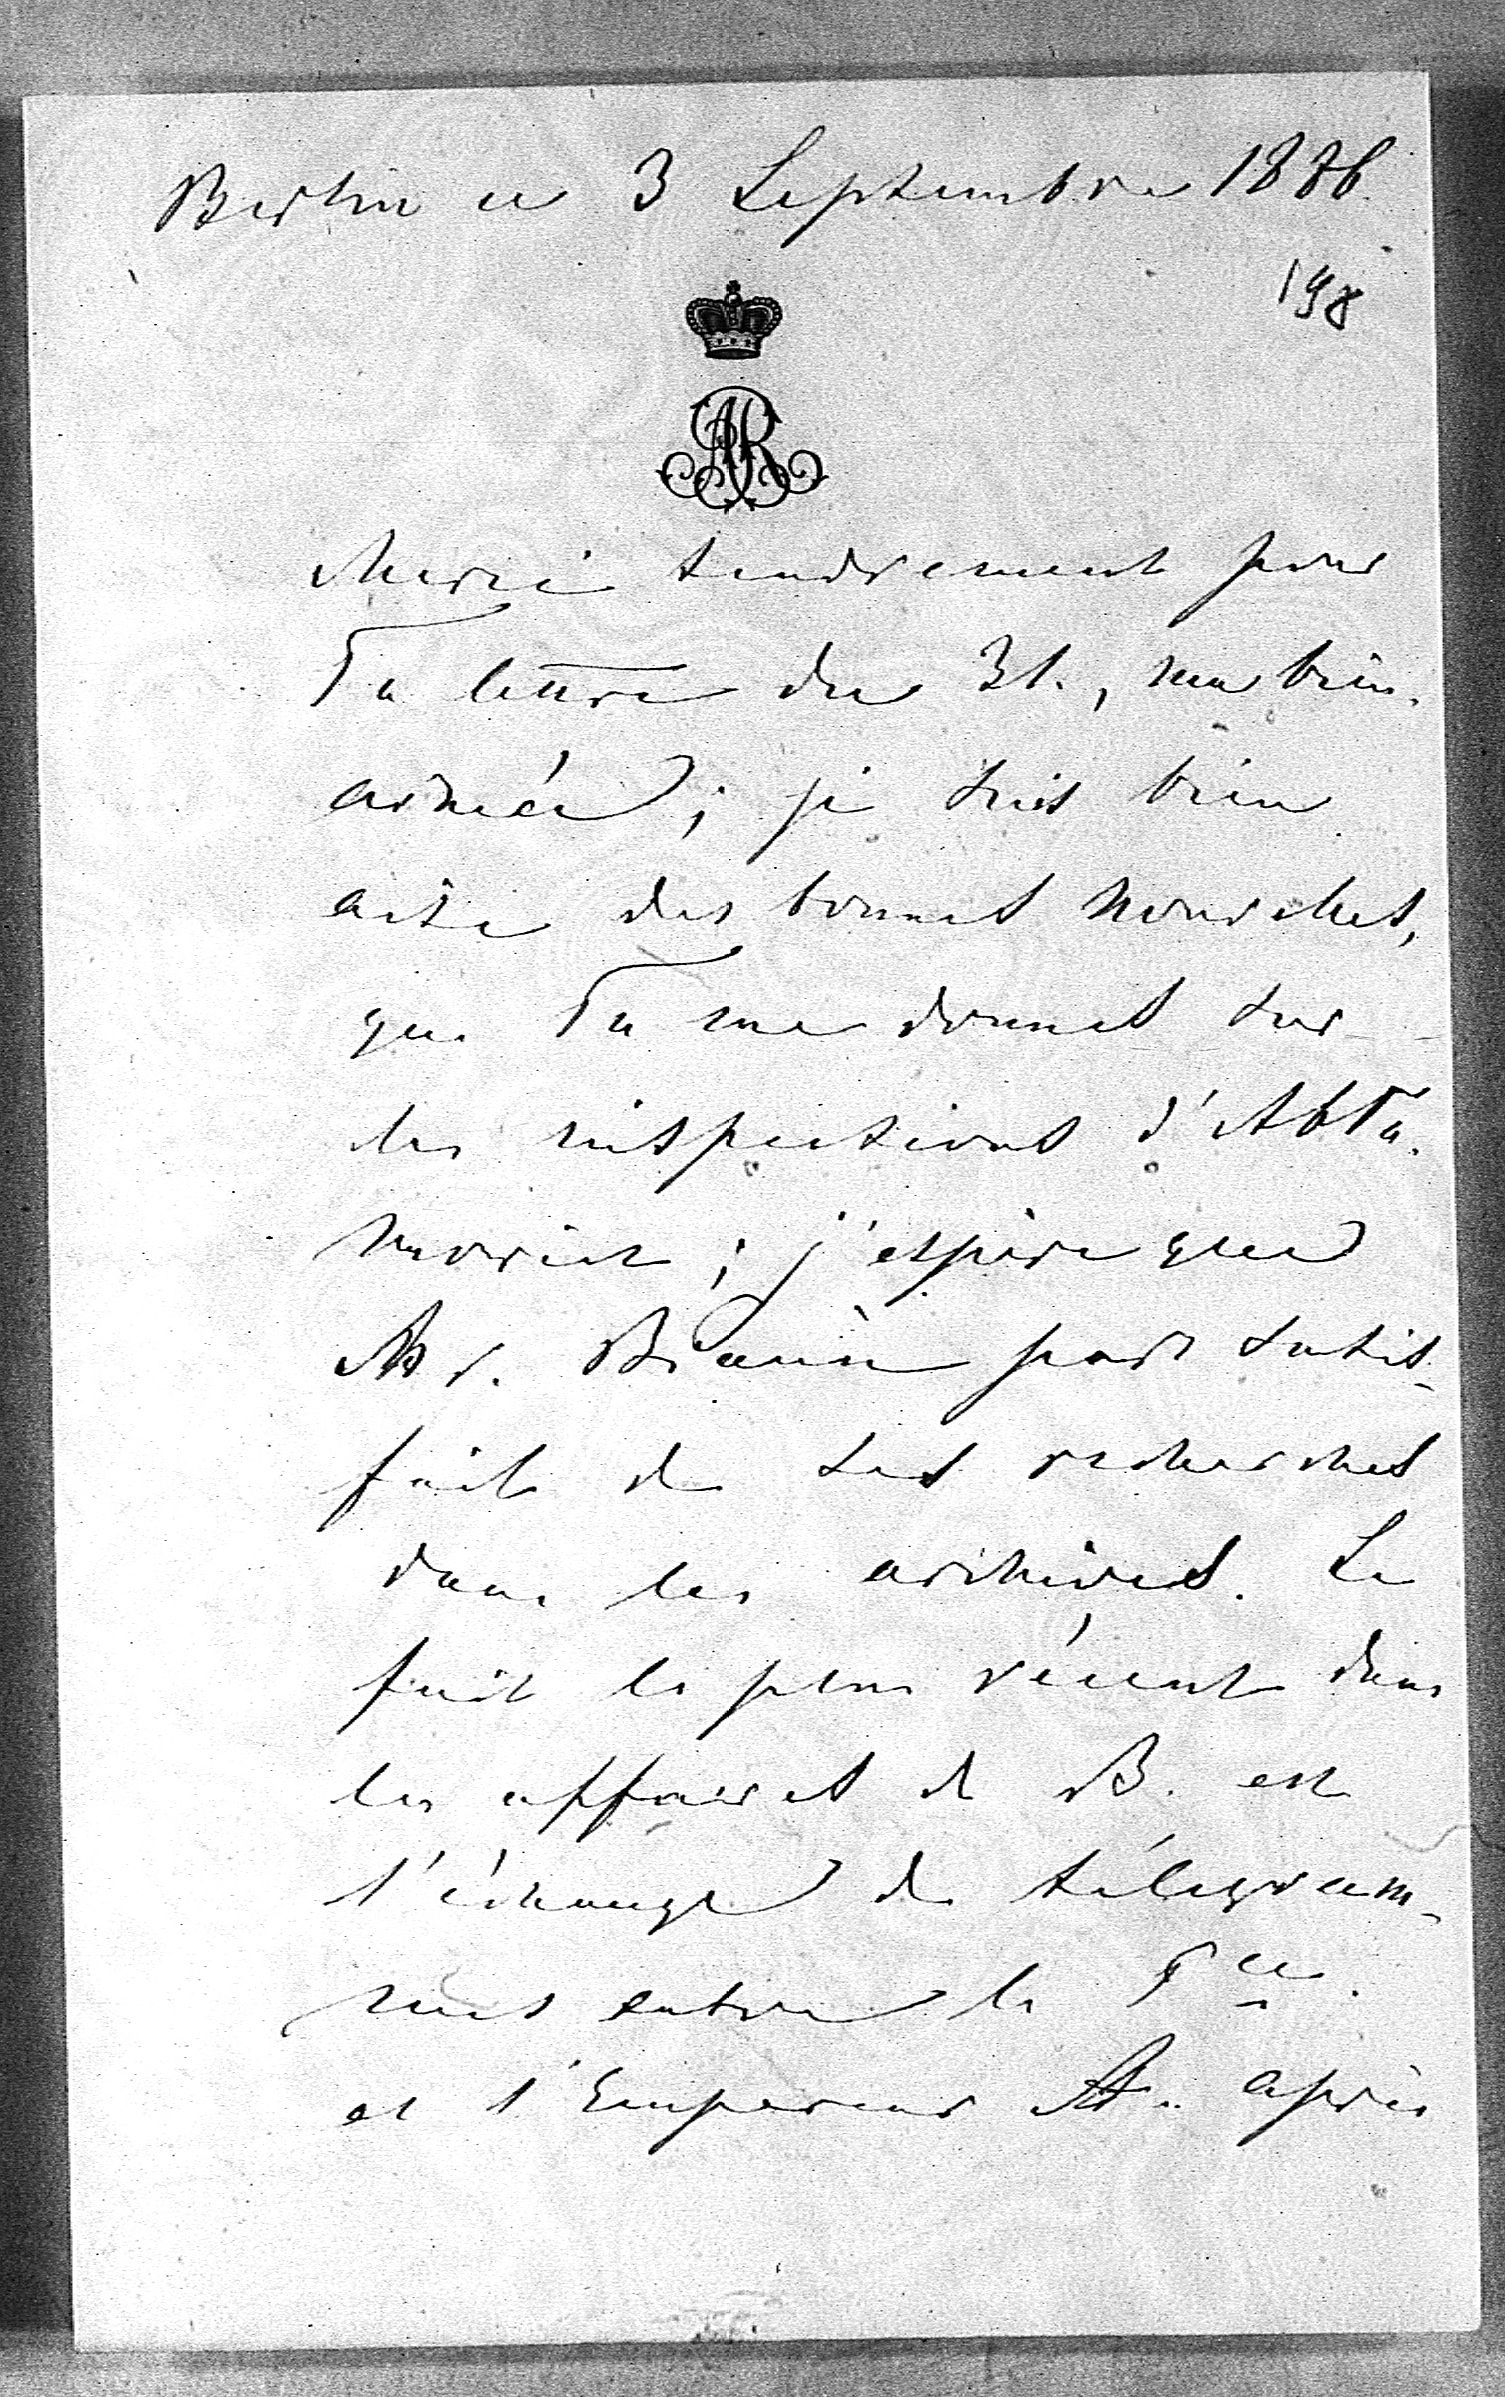 Berlin ce 3 Septembre 1886.
198
AR
Merci tendrement pour
Ta lettre du 31., ma bien-
aimée; je suis bien
aise des bonnes nouvelles,
que Tu me donnes sur
les inspections d'AbTa.
; j'espère que
Mr. part satis-
fait de ses recherches
dans les archives. Le
fait le plus récent dans
les affaires de B. est
l'échange de télégram-
mes entre le
et l'Empereur A.. après